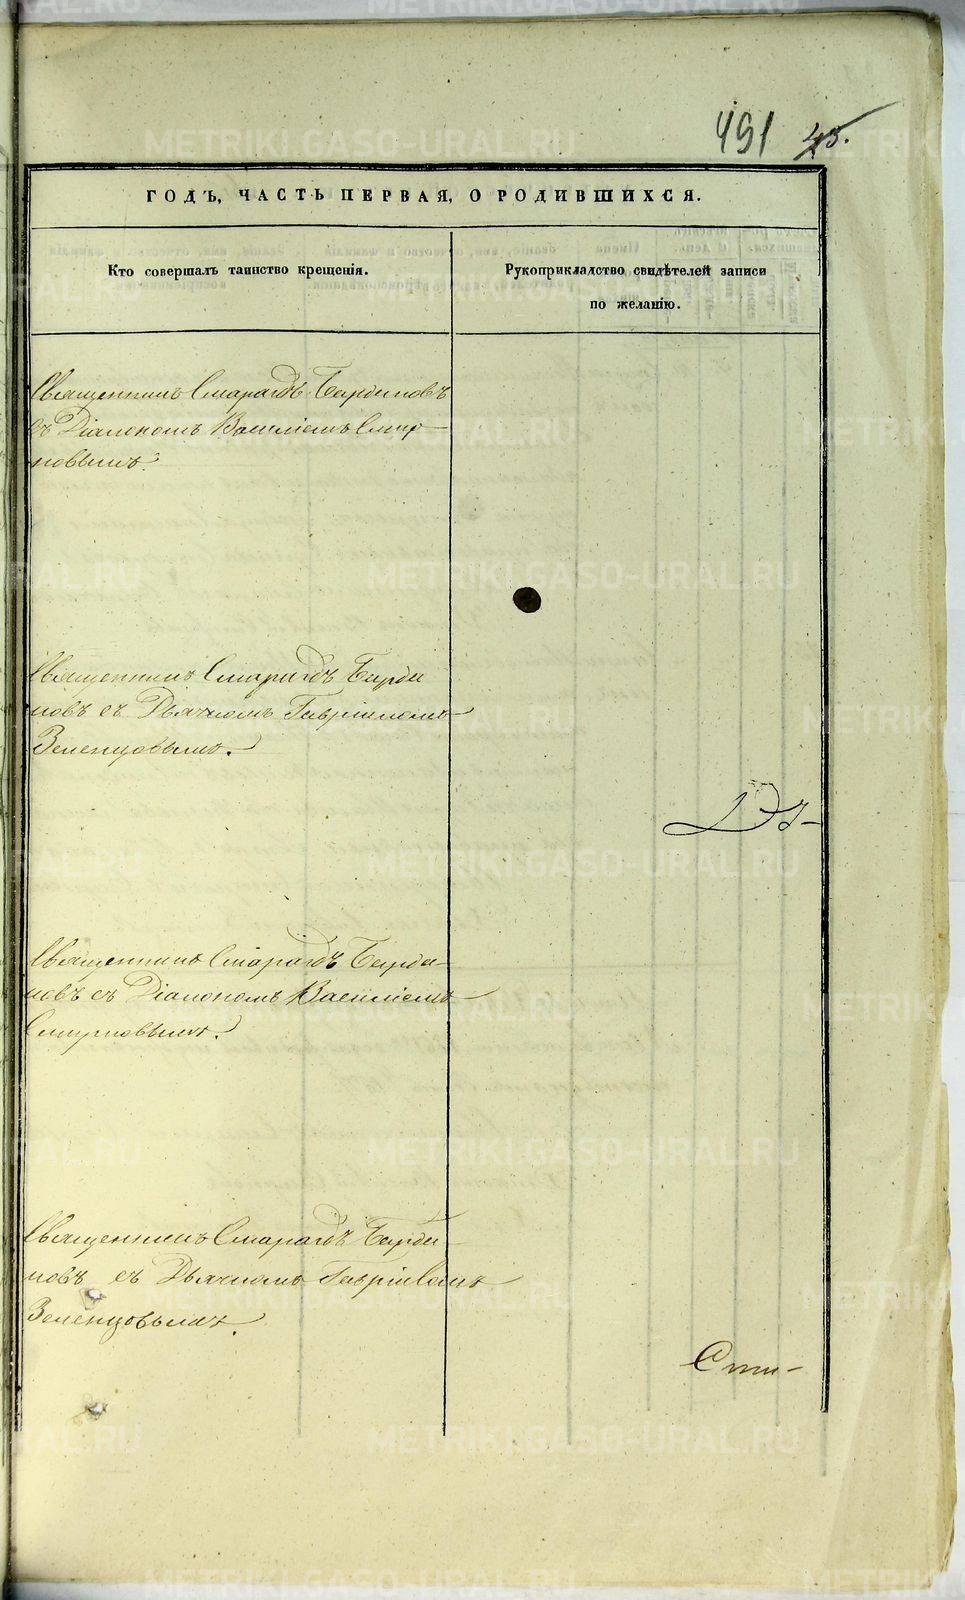 491 45.
ГОДЪ, ЧАСТЬ ПЕРВАЯ, О РОДИВШИХСЯ.
Кто совершалъ таинство крещенія.
Рукоприкладство свидѣтелей записи
по желанію.
Священникъ Смарагдъ Бирюковъ
съ Діакономъ Василіемъ Смир-
новымъ.
Священникъ Смарагдъ
новъ съ Дьячкомъ Гавріиломъ
Зеленцовымъ.
Священникъ Смарагдъ
съ Діакономъ Василіемъ
Смирновымъ.
Священникъ Смарагдъ
съ Дьячкомъ Гавріиломъ
Зеленцовымъ.
METRIKI.GASO-URAL.RU